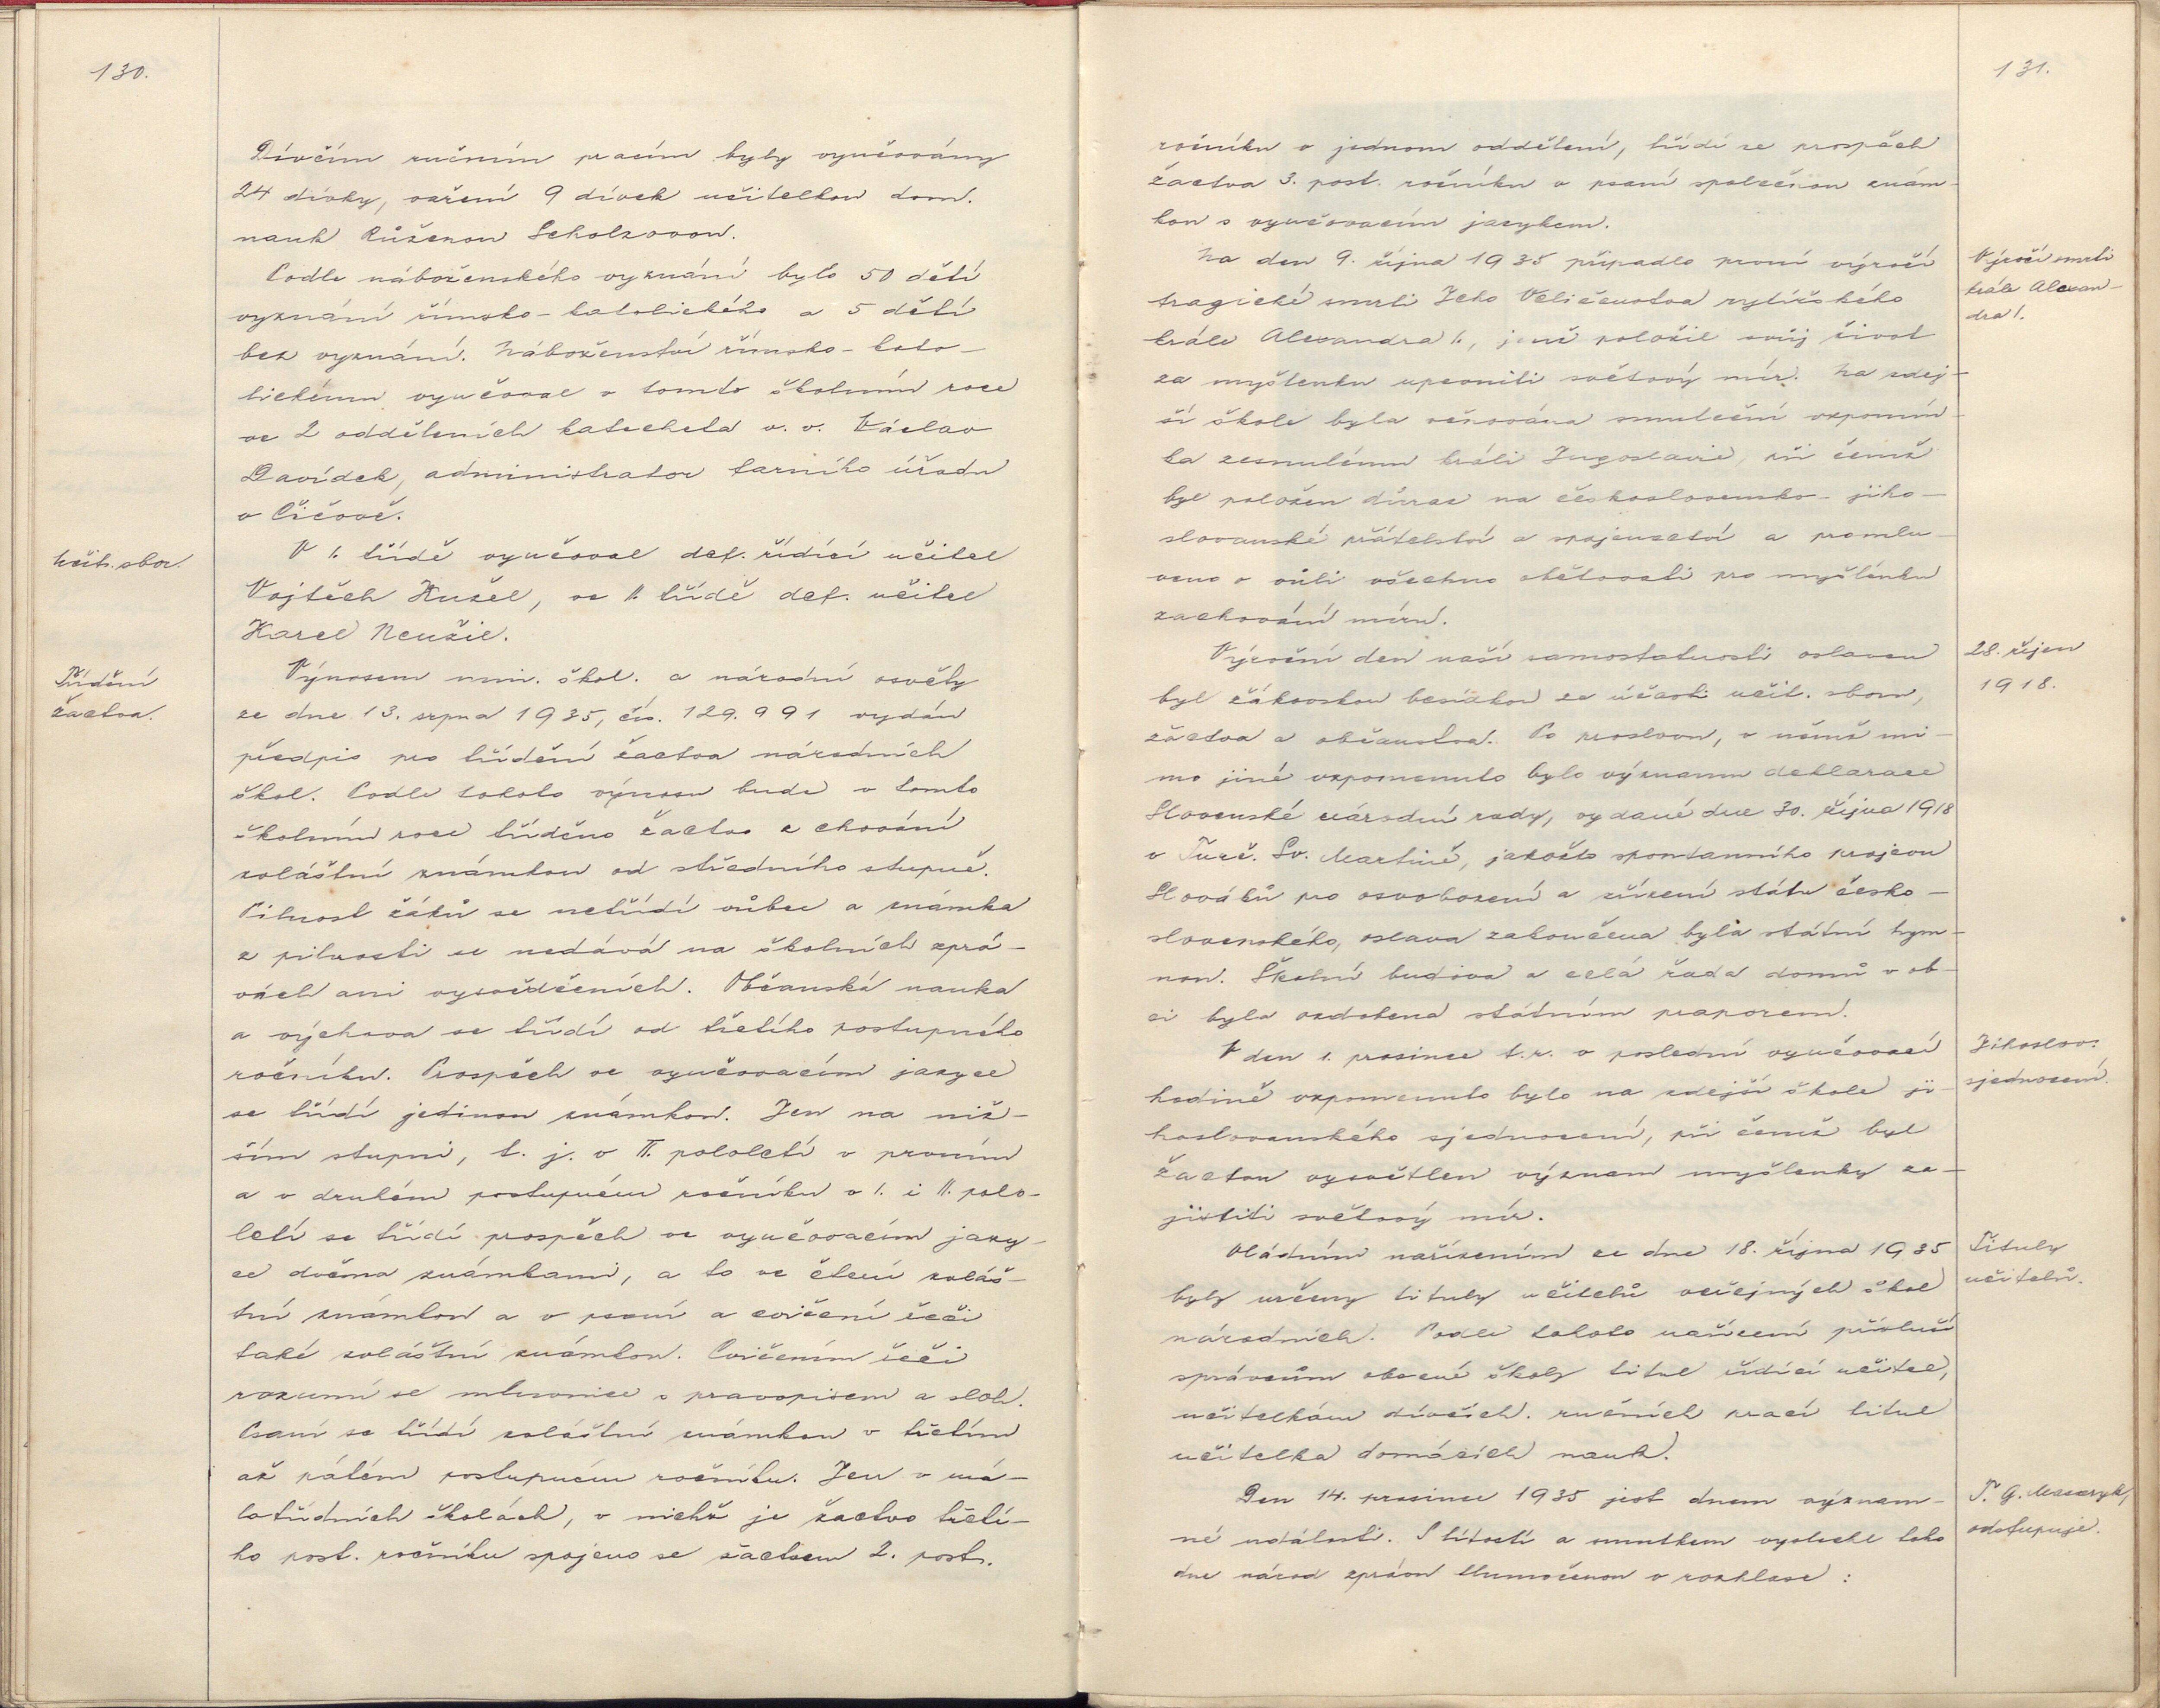 130.
Dívčím ručním pracím byly vyučovány
24 dívky, vaření 9 dívek učitelkou dom.
nauk Růženou Scholzovou.
Podle náboženského vyznání bylo 50 dětí
vyznání římsko-katolického a 5 dětí
bez vyznání. Náboženství římsko-kato-
lickému vyučoval v tomto školním roce
ve 2 odděleních katecheta v. v. Václav
Davídek, administrator farního úřadu
v Čičově.
Učit. sbor.
V I. třídě vyučoval def. řídící učitel
Vojtěch Kužel, ve II. třídě def. učitel
Karel Neužil.
Třídění
žactva.
Výnosem min. škol. a národní osvěty
ze dne 13. srpna 1935, čís. 129.991 vydán
předpis pro třídění žactva národních
škol. Podle tohoto výnosu bude v tomto
školním roce tříděno žactvo z chování
zvláštní známkou od středního stupně.
Pilnost žáků se netřídí vůbec a známka
z pilnosti se nedává na školních zprá-
vách ani vysvědčeních. Občanská nauka
a výchova se třídí od třetího postupného
ročníku. Prospěch ve vyučovacím jazyce
se třídí jedinou známkou. Jen na niž-
ším stupni, t. j. v II. pololetí v prvním
a v druhém postupném ročníku v I. i II. polo-
letí se třídí prospěch ve vyučovacím jazy-
ce dvěma známkami, a to ve čtení zvláš-
tní známkou a v psaní a cvičení řeči
také zvláštní známkou. Cvičením řeči
rozumí se mluvnice s pravopisem a sloh.
Psaní se třídí zvláštní známkou v třetím
až pátém postupném ročníku. Jen v má-
lotřídních školách, v nichž je žactvo třetí-
ho post. ročníku spojeno se žactvem 2. post.
131.
ročníku v jednom oddělení, třídí se prospěch
žactva 3. post. ročníku v psaní společnou znám-
kou s vyučovacím jazykem.
Výročí smrti
krále Alexan-
dra I.
Na den 9. října 1935 připadlo první výročí
tragické smrti Jeho Veličenstva rytířského
krále Alexandra I., jenž položil svůj život
za myšlenku upevniti světový mír. Na zdej-
ší škole byla věnována smuteční vzpomín-
ka zesnulému králi Jugoslavie, při čemž
byl položen důraz na československo-jiho-
slovanské přátelství a spojenectví a promlu-
veno o vůli všechno obětovati pro myšlenku
zachování míru.
28. říjen
1918.
Výroční den naší samostatnosti oslaven
byl žákovskou besídkou za účasti učit. sboru,
žactva a občanstva. Po proslovu, v němž mi-
mo jiné vzpomenuto bylo významu deklarace
Slovenské národní rady, vydané dne 30. října 1918
v Turč. Sv. Martině, jakožto spontanního projevu
Slováků pro osvobození a zřízení státu česko-
slovenského, oslava zakončena byla státní hym-
nou. Školní budova a celá řada domů v ob-
ci byla ozdobena státním praporem.
Jihoslov.
sjednocení.
V den 1. prosince t. r. v poslední vyučovací
hodině vzpomenuto bylo na zdejší škole ji-
hoslovanského sjednocení, při čemž byl
žactvu vysvětlen význam myšlenky za-
jistiti světový mír.
Tituly
učitelů.
Vládním nařízením ze dne 18. října 1935
byly určeny tituly učitelů veřejných škol
národních. Podle tohoto nařízení přísluší
správcům obecné školy titul řídící učitel,
učitelkám dívčích ručních prací titul
učitelka domácích nauk.
T. G. Masaryk,
odstupuje.
Den 14. prosince 1935 jest dnem význam-
né události. S lítostí a smutkem vyslechl toho
dne národ zprávu tlumočenou v rozhlase: